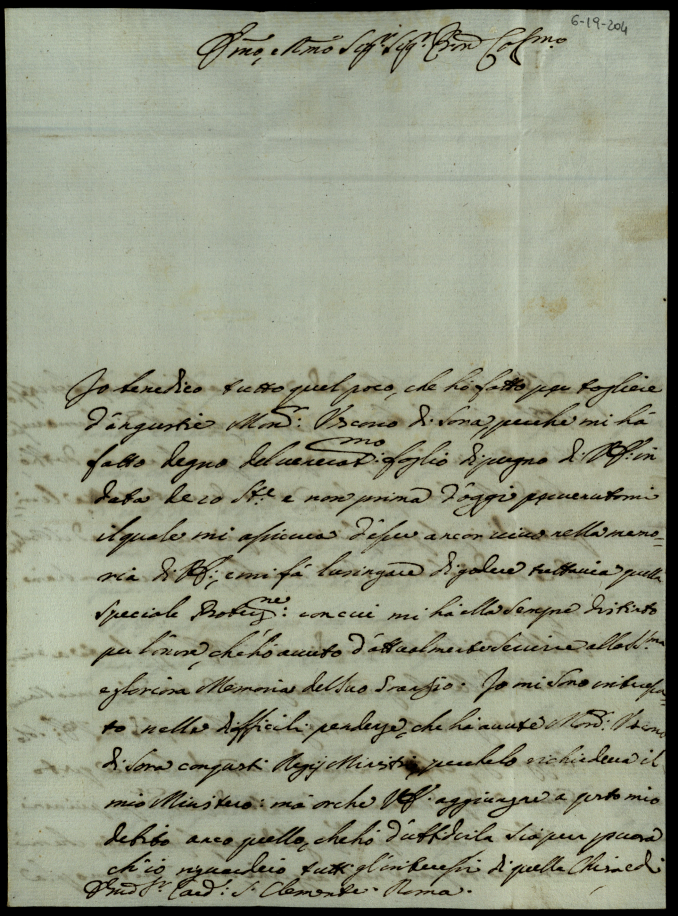 6-19-204
Emo, e Rmo Sig.r Sig.r Pron Colmo
Io benedico tutto quel poco, che hò fatto per togliere
d'angustie Mons.r Vescovo di Sora, perche mi hà
fatto degno del venerat.mo foglio di pugno di V. in
data de 20 St.e e non prima d'oggi pervenutomi
il quale mi assicura d'esser ancor vivo nella memo-
ria di V.; e mi fà lusingare di godere tuttavia quella
speciale Protez.ne: con cui mi hà ella sempre distinto
per l'onore, che hò avuto d'attualmente servire alla S.
e gloriosa Memoria del suo Gran Zio. Io mi sono interessa-
to nelle difficili pendenze, che hà avute Mons.r Vescovo
di Sora con questi Regij Ministri, perche lo richiedeva il
mio Ministero: mà or che V. aggiunge a questo mio
debito anco quello, che hò d'ubbidirla sia per
ch'io riguarderò tutti gl'interessi di quella Chiesa, e di
Sr. Card: S. Clemente. Roma.